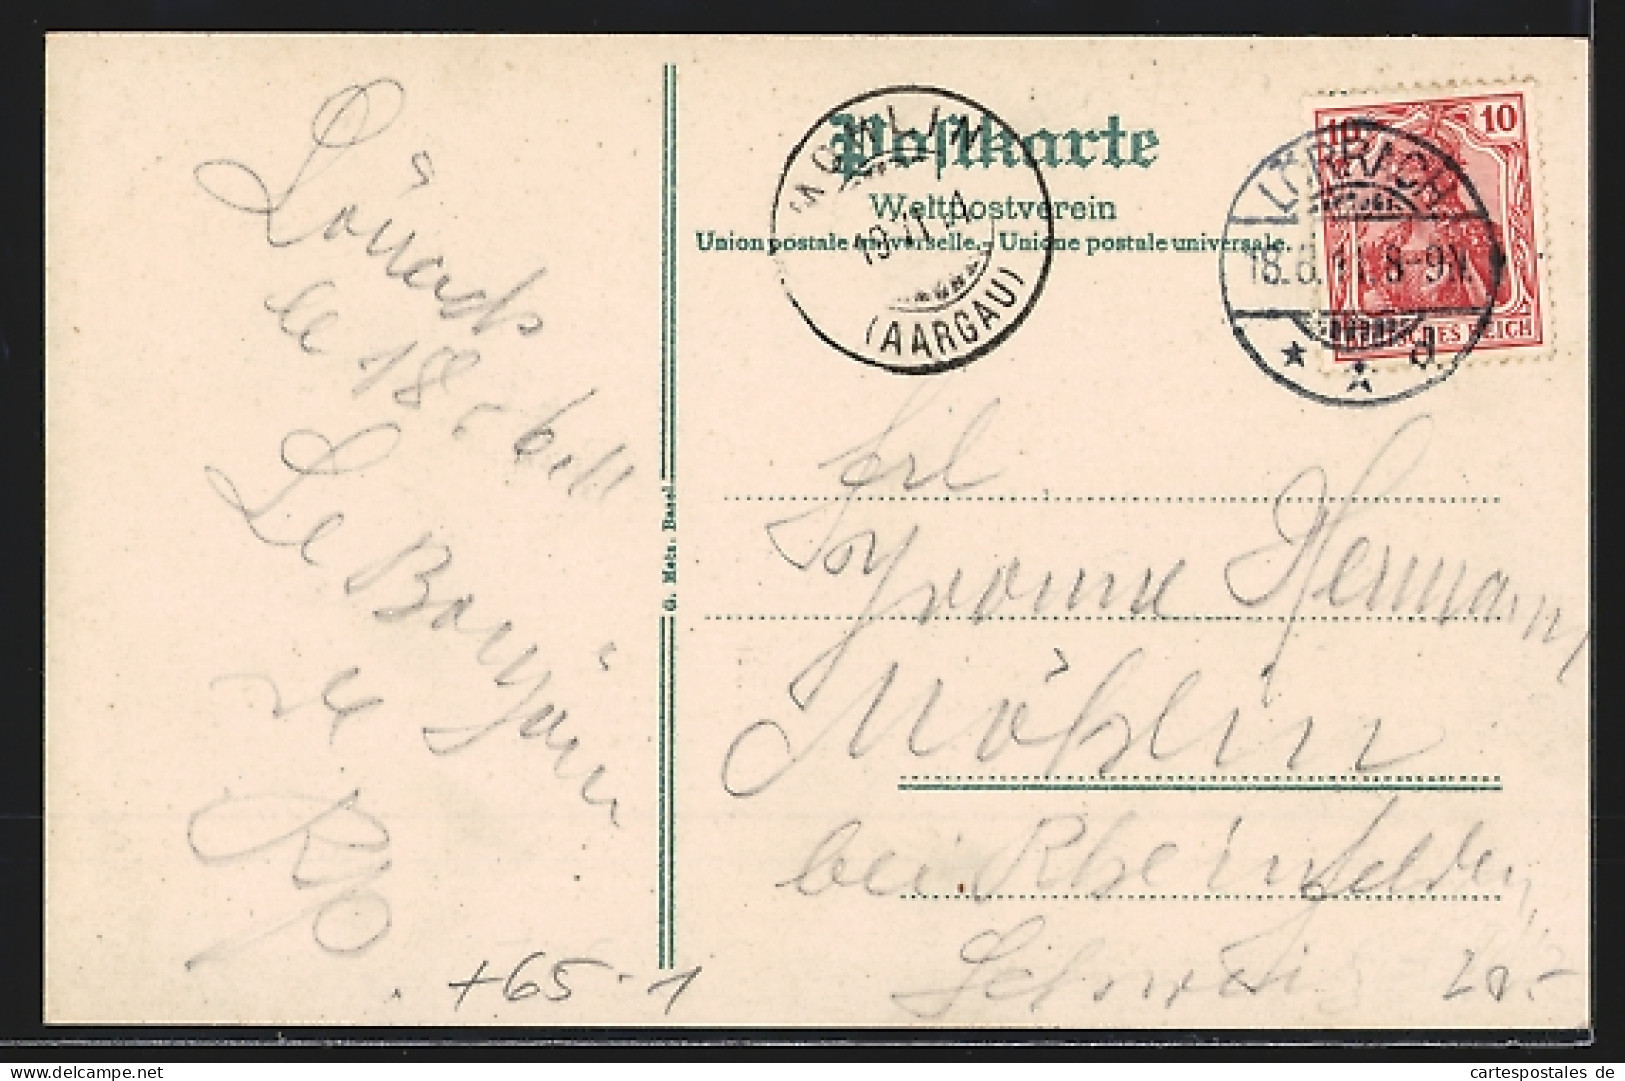 Lörrach
le 18.6.11
Le Bonjour
de
G. Metz, Basel
Postkarte
Weltpostverein
Union postale universelle.- Unione postale universale.
MOEHLIN
19.VI.11
(AARGAU)
10 10
DEUTSCHES REICH
LÖRRACH
18.6.11.8-9N.
* * d
Frl
Yvonne Hermann
Möhlin
bei Rheinfelden
Schweiz
+65-1
cartespostales de